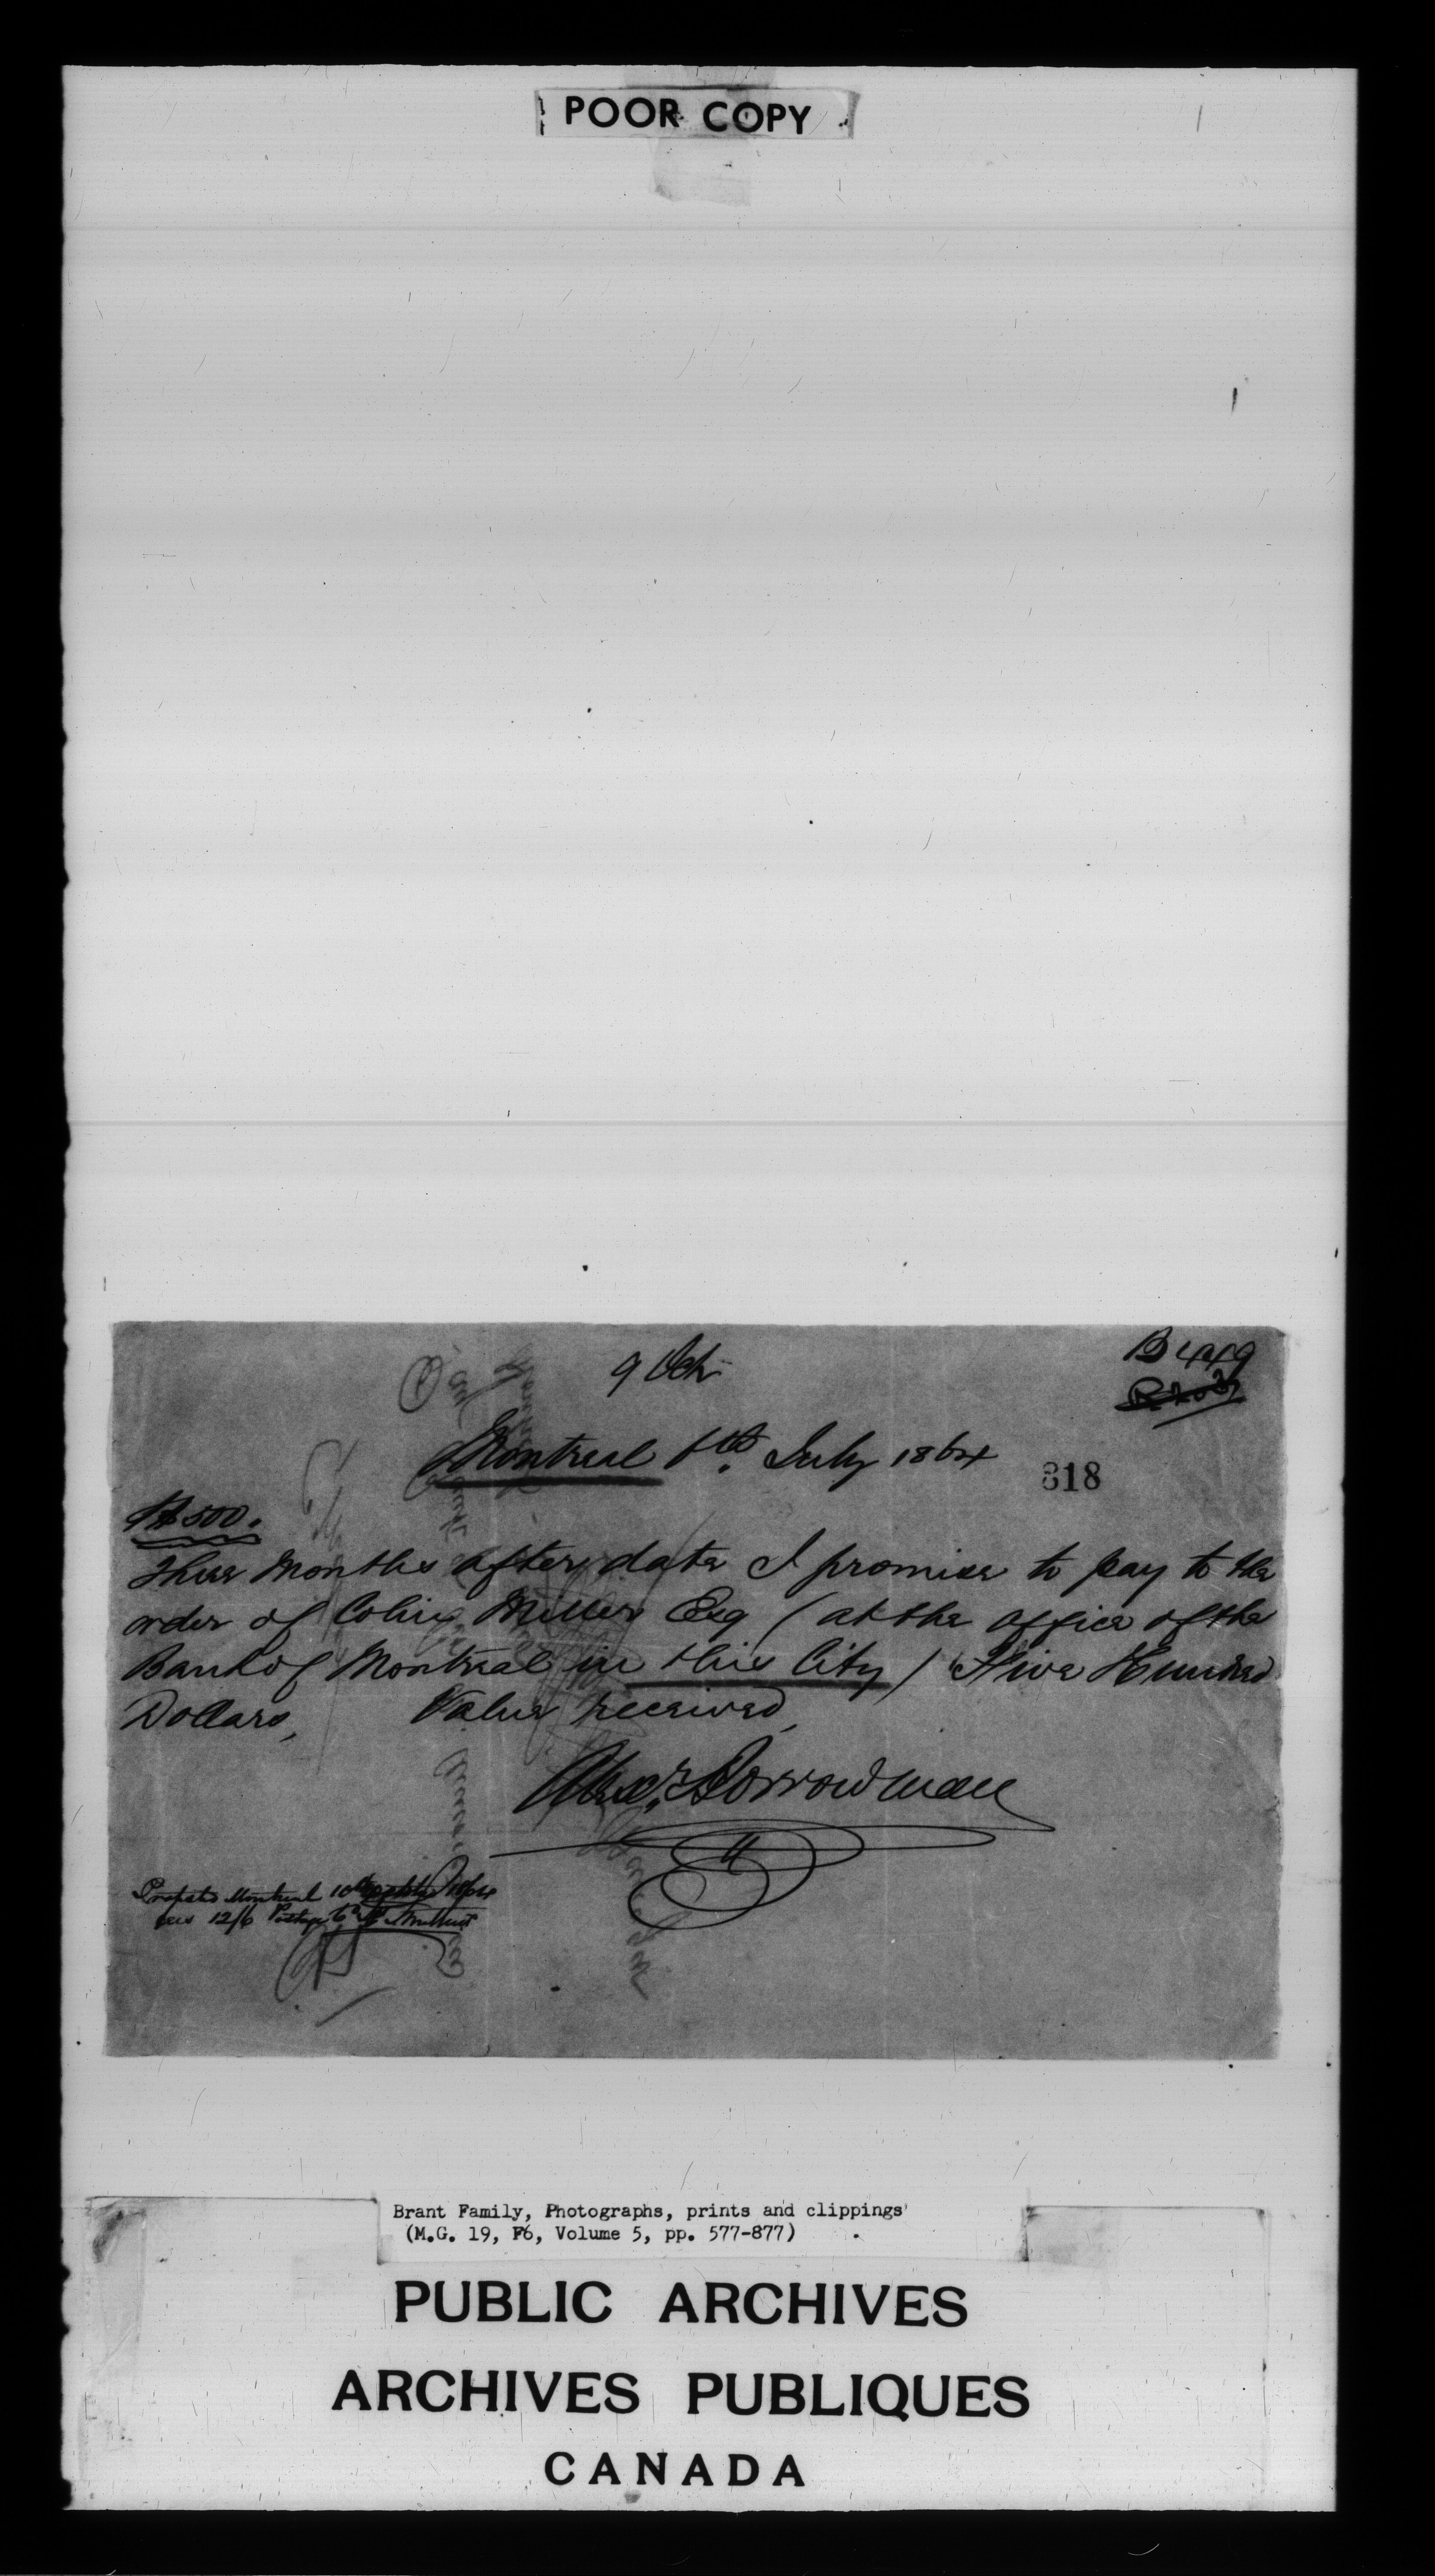 POOR COPY
9 Oct
B 4449
Montreal 6th. July 1864
818
$500.
Three Months after date I promise to pay to the
order of Colin Miller Esq (at the office of the
Bank of Montreal in this City) Five Hundred
Dollars, Value received,
Alexr. Borrowman
Montreal 10
12/6 Postage
Brant Family, Photographs, prints and clippings
(M.G. 19, F6, Volume 5, pp. 577-877)
PUBLIC ARCHIVES
ARCHIVES PUBLIQUES
CANADA